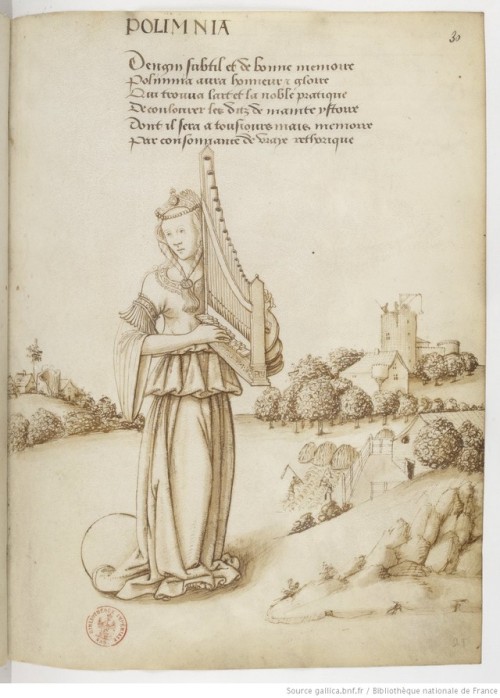 POLIMNIA
30
Dengin subtil et de bonne memoire
Polimnia aura honneur & gloire
Qui trouva lart et la noble pratique
De coulourer les ditz de mainte ystoire
Dont il sera a tousiours mais memoire
Par consonnance de vraye rethorique
28
Source gallica.bnf.fr / Bibliothèque nationale de France